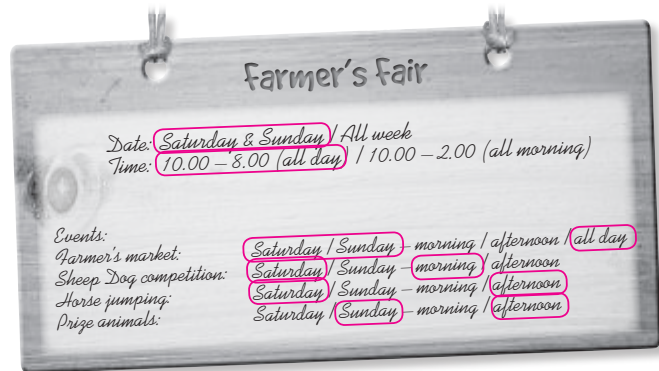 Farmer's Fair
Date: Saturday & Sunday / All week
Time: 10.00 – 8.00 (all day) / 10.00 – 2.00 (all morning)
Events:
Farmer's market: Saturday / Sunday – morning / afternoon / all day
Sheep Dog competition: Saturday / Sunday – morning / afternoon
Horse jumping: Saturday / Sunday – morning / afternoon
Prize animals: Saturday / Sunday – morning / afternoon